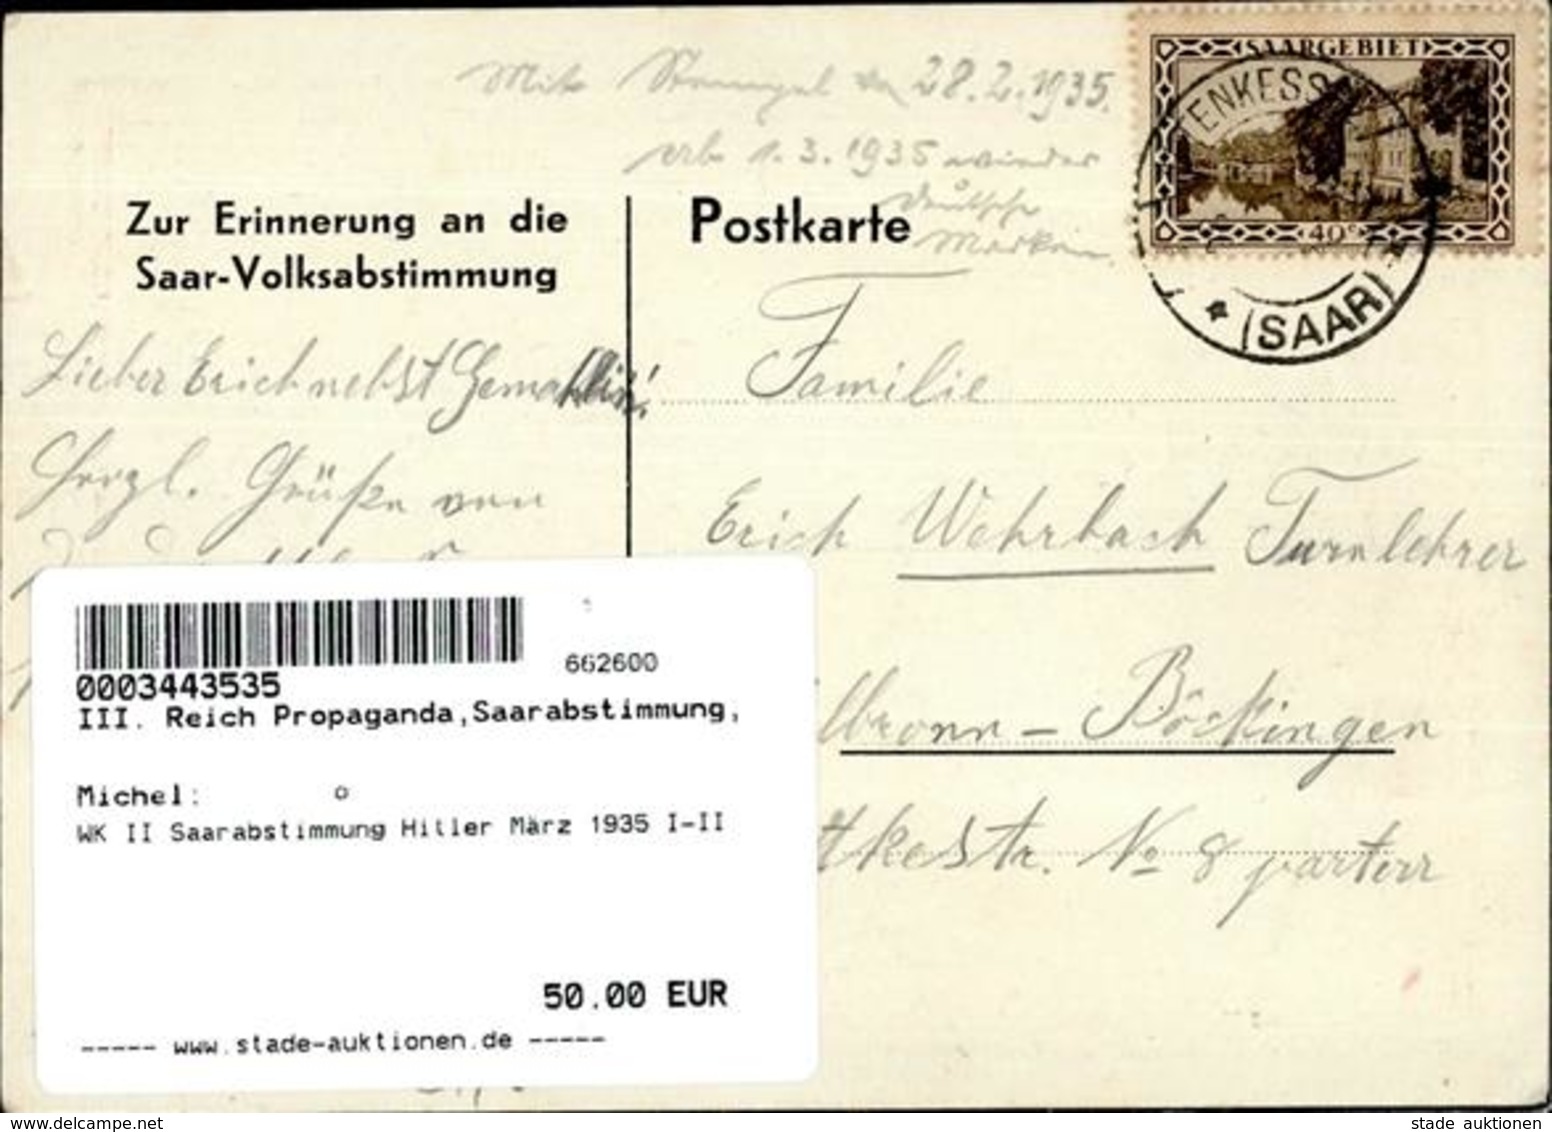 Mit Stempel 28.2.1935.
1.3.1935 wieder
deutsche
Marken.
SAARGEBIET
40c
ENKESS
(SAAR)
Zur Erinnerung an die
Saar-Volksabstimmung
Postkarte
Lieber Erich nebst Gemahlin!
Herzl. Grüße von
Familie
Erich Wehrbach Turnlehrer
lbronn - Böckingen
tkestr. No 8 parterr
0003443535
662600
III. Reich Propaganda,Saarabstimmung,
Michel: o
WK II Saarabstimmung Hitler März 1935 I-II
50.00 EUR
----- www.stade-auktionen.de -----
www.delcampe.net
stade auktionen